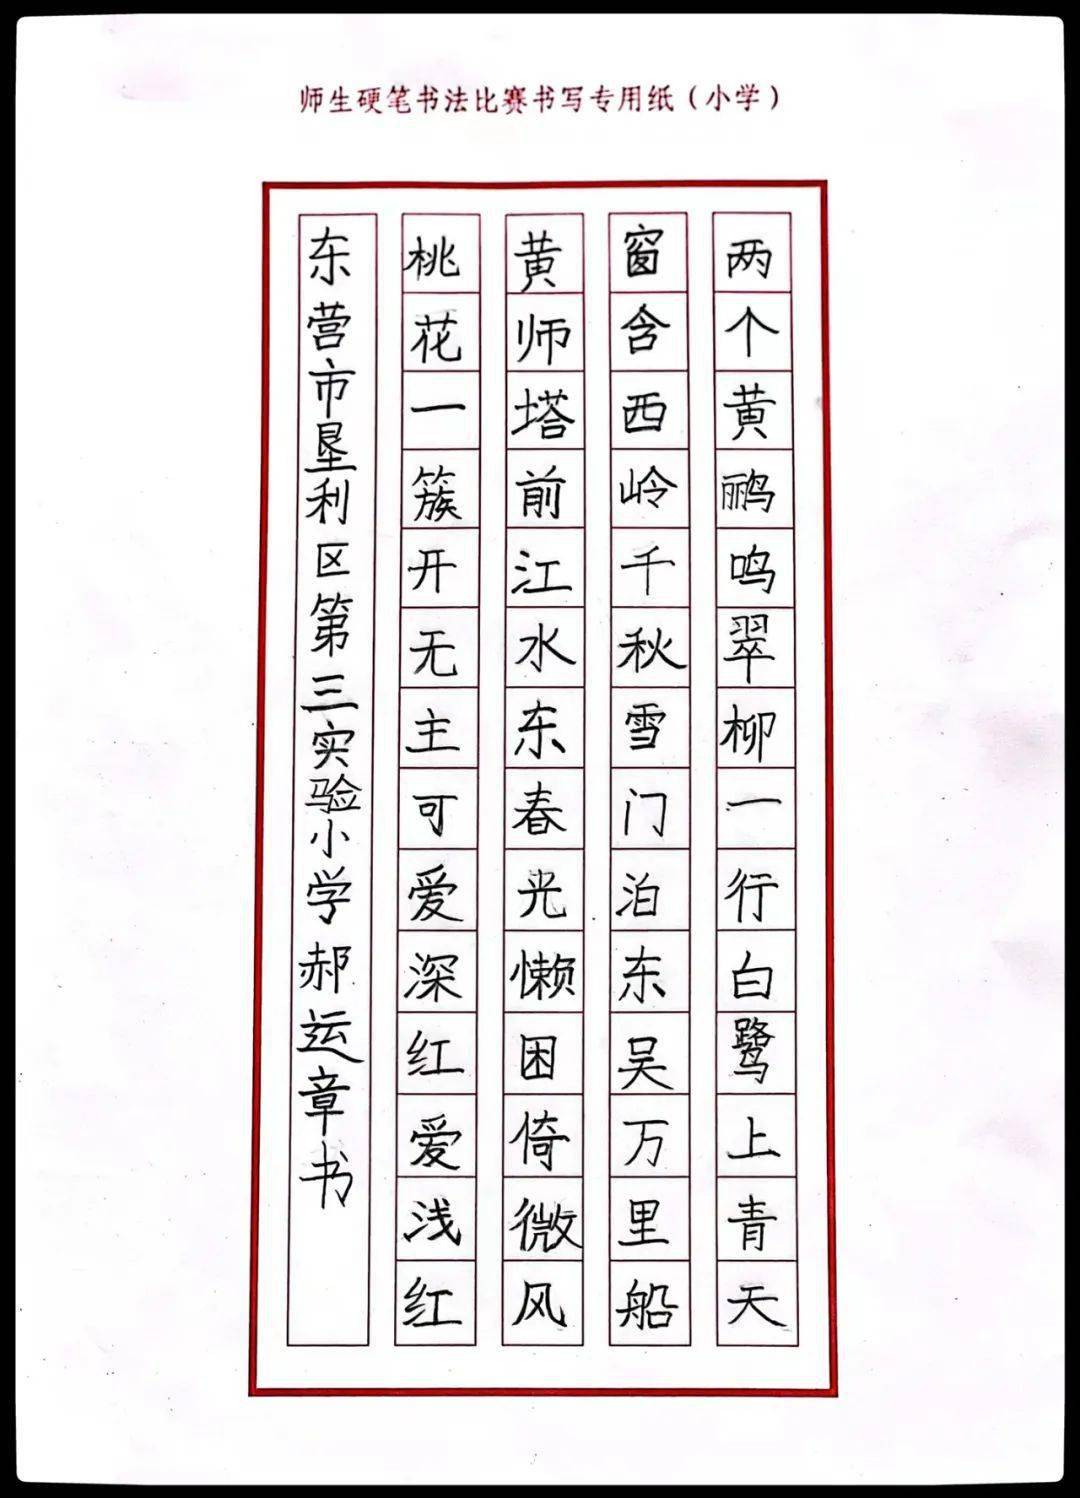 师生硬笔书法比赛书写专用纸（小学）
两个黄鹂鸣翠柳一行白鹭上青天
窗含西岭千秋雪门泊东吴万里船
黄师塔前江水东春光懒困倚微风
桃花一簇开无主可爱深红爱浅红
东营市垦利区第三实验小学郝运章书